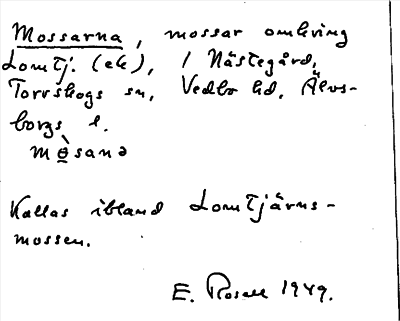 Mossarna, mossar omkring
Lomtj. (ek), i Nästegård,
Torrskogs sn, Vedbo hd, Älvs-
borgs l.
mèsanə
Kallas ibland Lomtjärns-
mossen.
E. Rosell 1949.